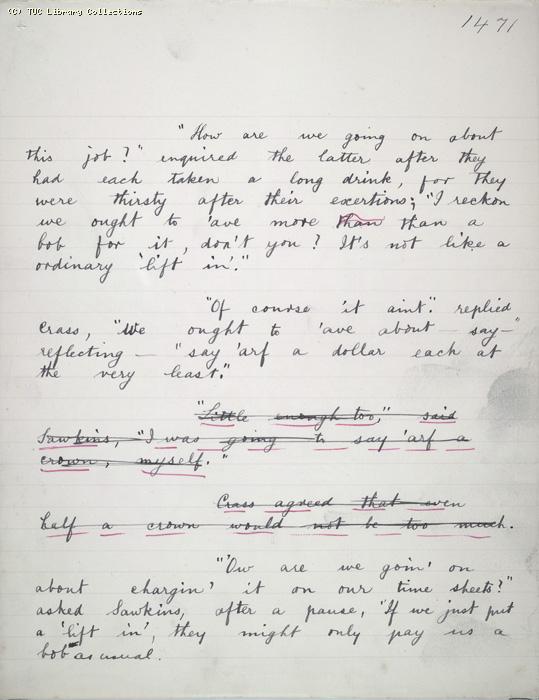 (C) TUC Library Collections
1471
"How are we going on about
this job?" enquired the latter after they
had each taken a long drink, for they
were thirsty after their excertions; "I reckon
we ought to 'ave more than than a
bob for it, don't you? It's not like a
ordinary 'lift in'."
"Of course it aint". replied
Crass, "We ought to 'ave about — say —"
reflecting — "say 'arf a dollar each at
the very least."
"Little enough too," said
Sawkins, "I was going to say 'arf a
crown, myself."
Crass agreed that even
half a crown would not be too much.
"'Ow are we goin' on
about chargin' it on our time sheets?"
asked Sawkins, after a pause, "If we just put
a 'lift in', they might only pay us a
bob as usual.